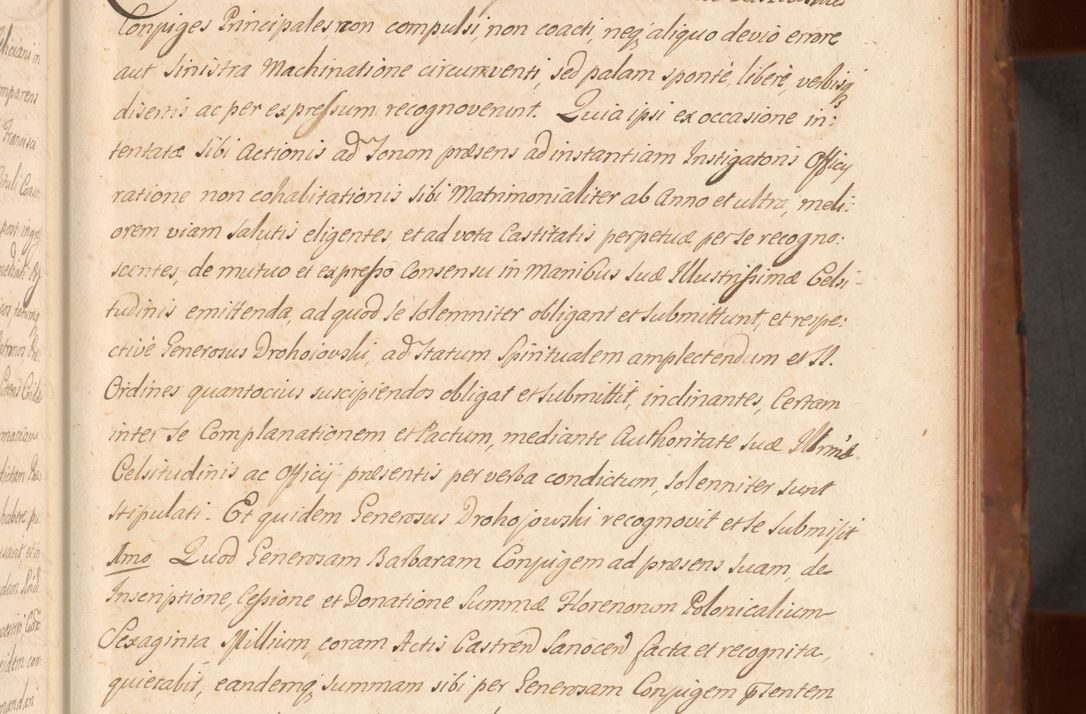 Conjuges Principales non compulsi, non coacti, neq; aliquo devio errore
aut sinistra Machinatione circumventi, sed palam sponte, libere, verbisq;
disertis ac per expressum recognoverunt. Quia ipsi ex occasione in:
tentatæ sibi Actionis ad Forum præsens ad instantiam Instigatoris Officij
ratione non cohabitationis sibi Matrimonialiter ab Anno et ultra, meli:
orem viam salutis eligentes, et ad vota Castitatis perpetuæ per se recogno:
scentes, de mutuo et expresso Consensu in Manibus suæ Illustrissimæ Celsi-
tudinis emittenda, ad quod se solemniter obligant et submittunt, et respe:
ctive Generosus Drohojowski, ad Statum Spiritualem amplectendum et SS.
Ordines quantocius suscipiendos obligat et submittit, inclinantes, Certam
inter se Complanationem et Pactum, mediante Authoritate suæ Illrmæ
Celsitudinis ac Officij præsentis per verba condictum, solenniter sunt
stipulati. Et quidem Generosus Drohojowski recognovit et se submisit
Imo Quod Generosam Barbaram Conjugem ad præsens suam, de
Inscriptione, Cessione et Donatione Summæ Florenorum Polonicalium
Sexaginta Millium, coram Actis Castren Sanocen facta et recognita,
quietabit, eandemq; Summam sibi per Generosam Conjugem pssentem